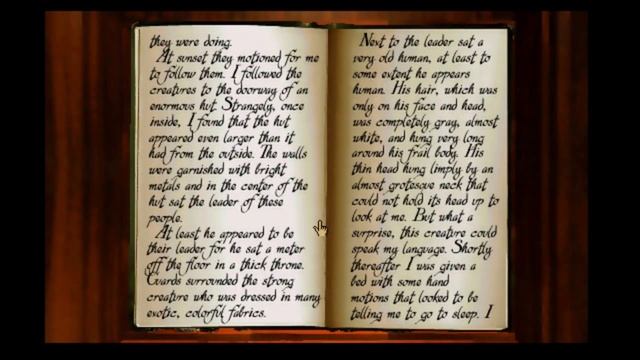 they were doing.
At sunset they motioned for me
to follow them. I followed the
creatures to the doorway of an
enormous hut. Strangely, once
inside, I found that the hut
appeared even larger than it
had from the outside. The walls
were garnished with bright
metals and in the center of the
hut sat the leader of these
people.
At least he appeared to be
their leader for he sat a meter
off the floor in a thick throne.
Guards surrounded the strong
creature who was dressed in many
exotic, colorful fabrics.
Next to the leader sat a
very old human, at least to
some extent he appears
human. His hair, which was
only on his face and head,
was completely gray, almost
white, and hung very long
around his frail body. His
thin head hung limply by an
almost grotesque neck that
could not hold its head up to
look at me. But what a
surprise, this creature could
speak my language. Shortly
thereafter I was given a
bed with some hand
motions that looked to be
telling me to go to sleep. I